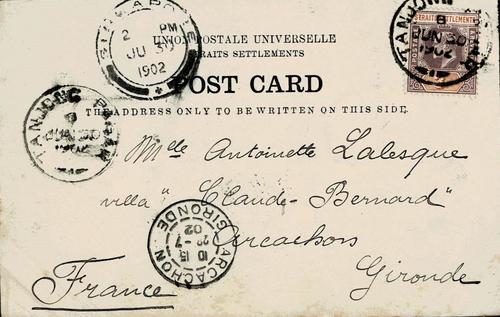 SINGAPORE
2 PM
JU 30
1902
UNION POSTALE UNIVERSELLE
STRAITS SETTLEMENTS
POST CARD
THE ADDRESS ONLY TO BE WRITTEN ON THIS SIDE.
STRAITS SETTLEMENTS
TANJONG PAGAR
8
JUN 30
1902
TANJONG PAGAR
8
JUN 30
1902
Melle Antoinette Lalesque
villa "Claude-Bernard"
Arcachon
Gironde
France
ARCACHON
GIRONDE
10 15
28 - 7
02